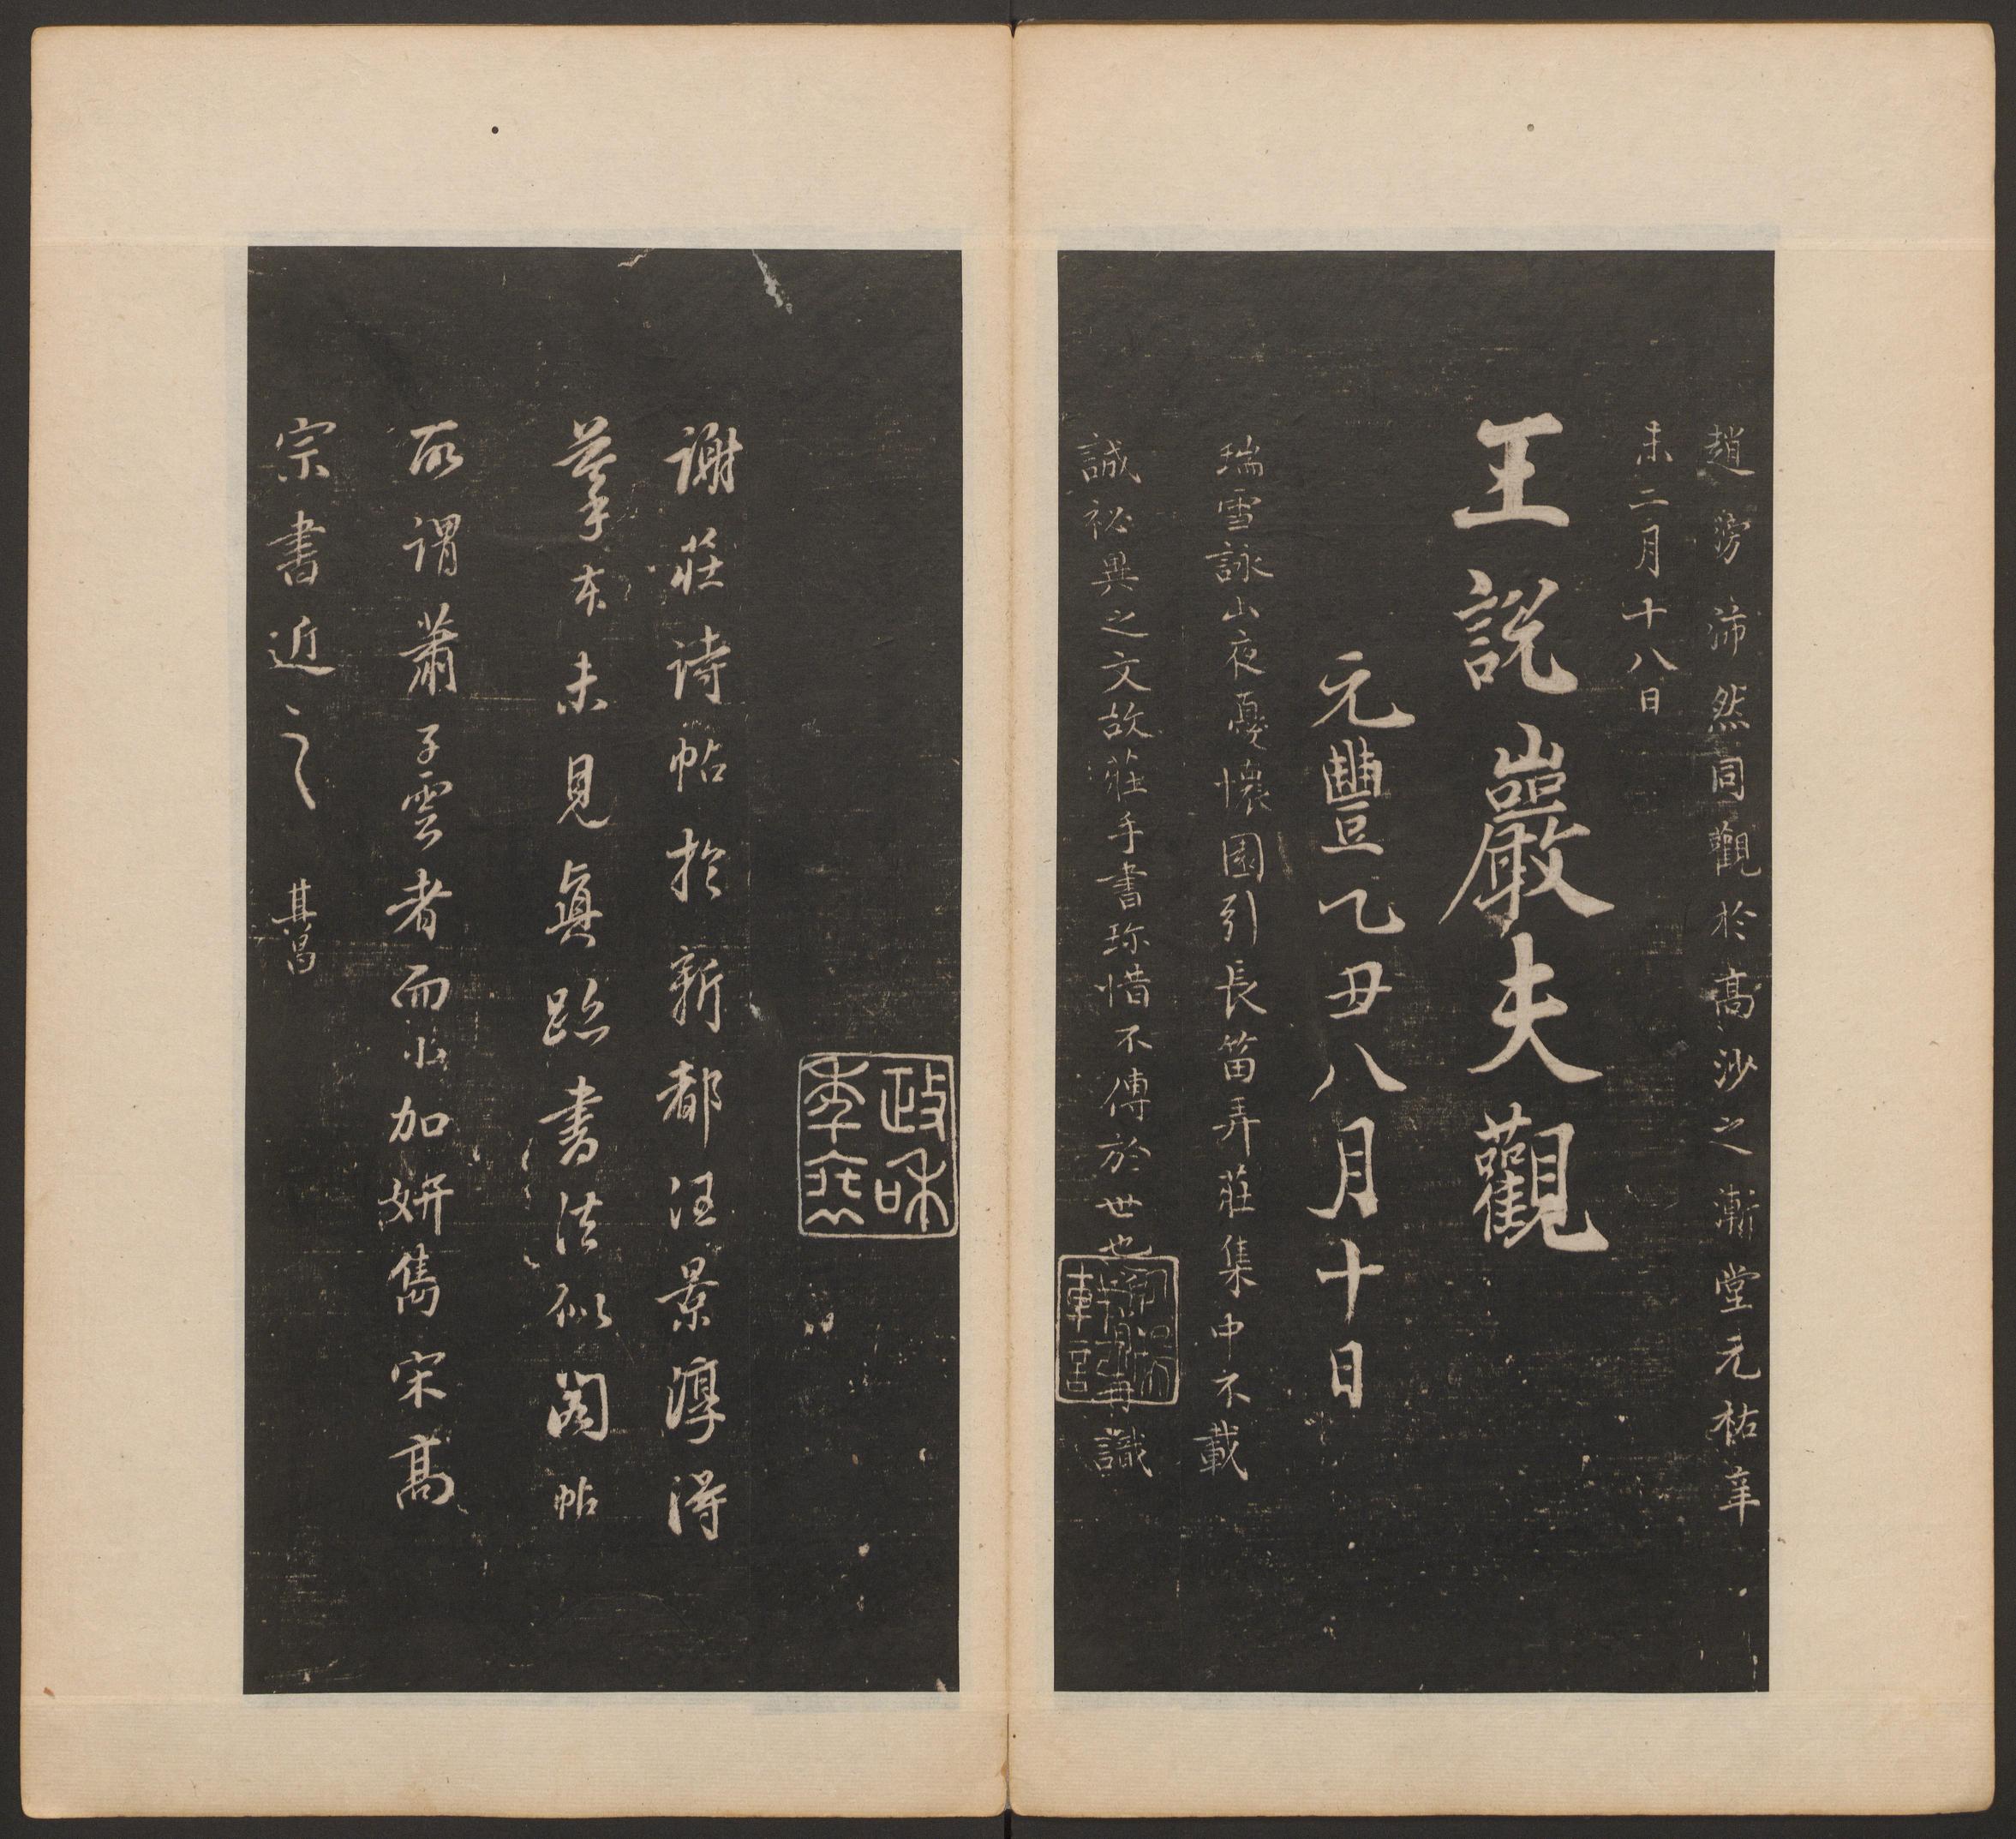 趙雱沛然同觀於高沙之漸堂元祐辛
未二月十八日
王說巖夫觀
元豐乙丑八月十日
瑞雪詠山夜憂懷園引長笛弄莊集中不載
誠祕異之文故莊手書珎惜不傳於世也 再識
政和
謝莊詩帖於新都汪景淳得
摹本未見真跡書法似閣帖
所謂蕭子雲者而小加妍雋宋高
宗書近之 其昌